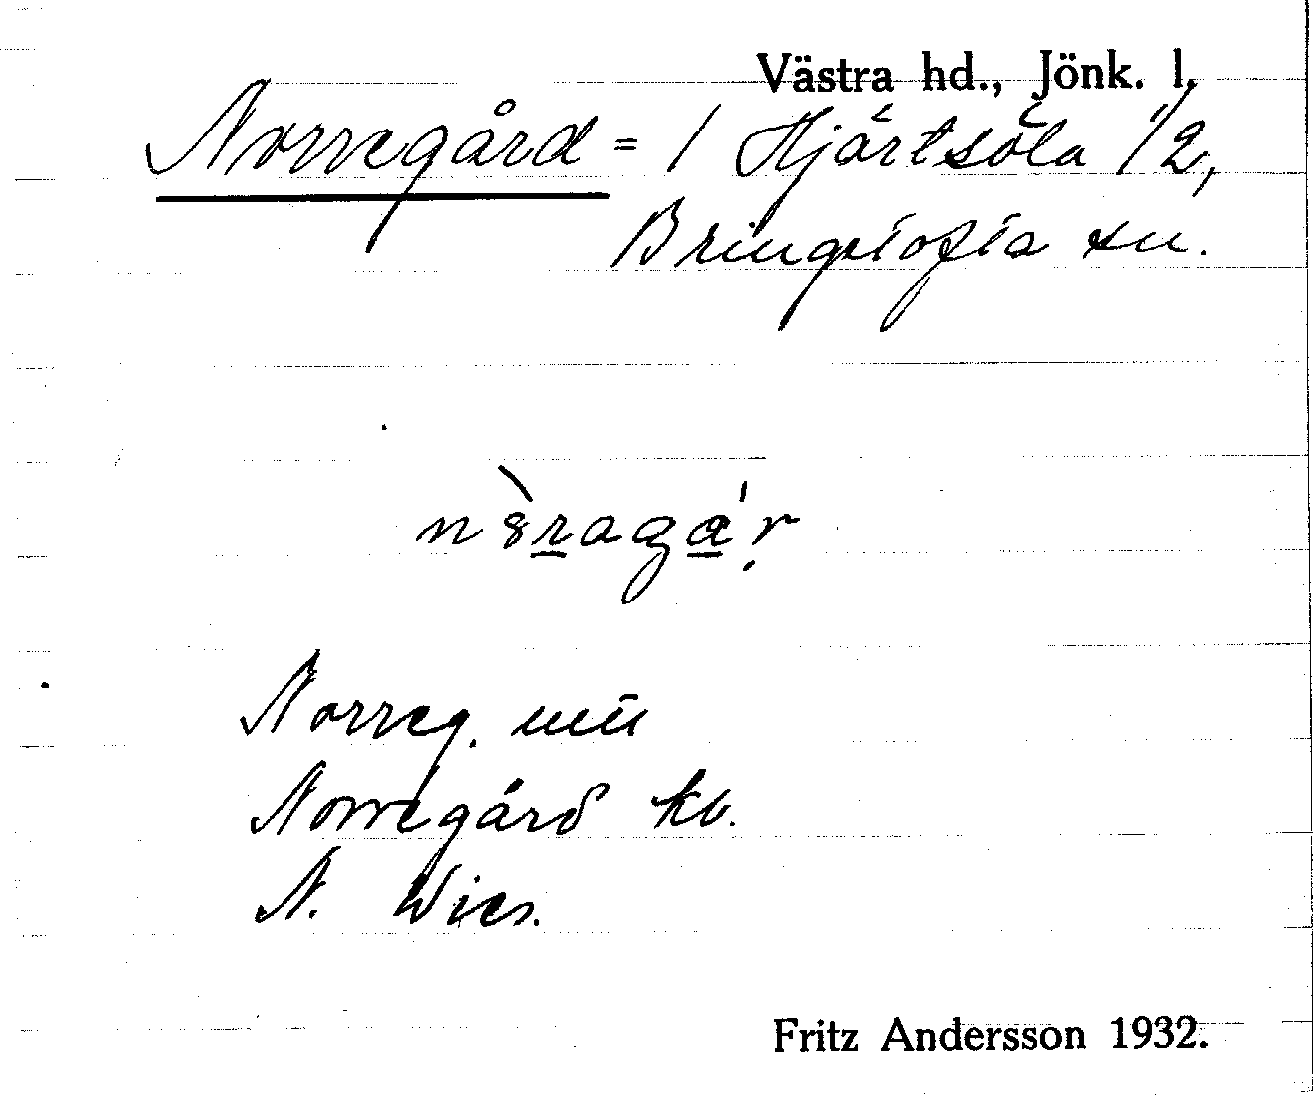 Västra hd., Jönk. l.
Norregård = / Hjärtsöla 1/2,
Bringetofta sn.
nèragá.r
Norreg. mū
Norregård kb.
N. Wies.
Fritz Andersson 1932.